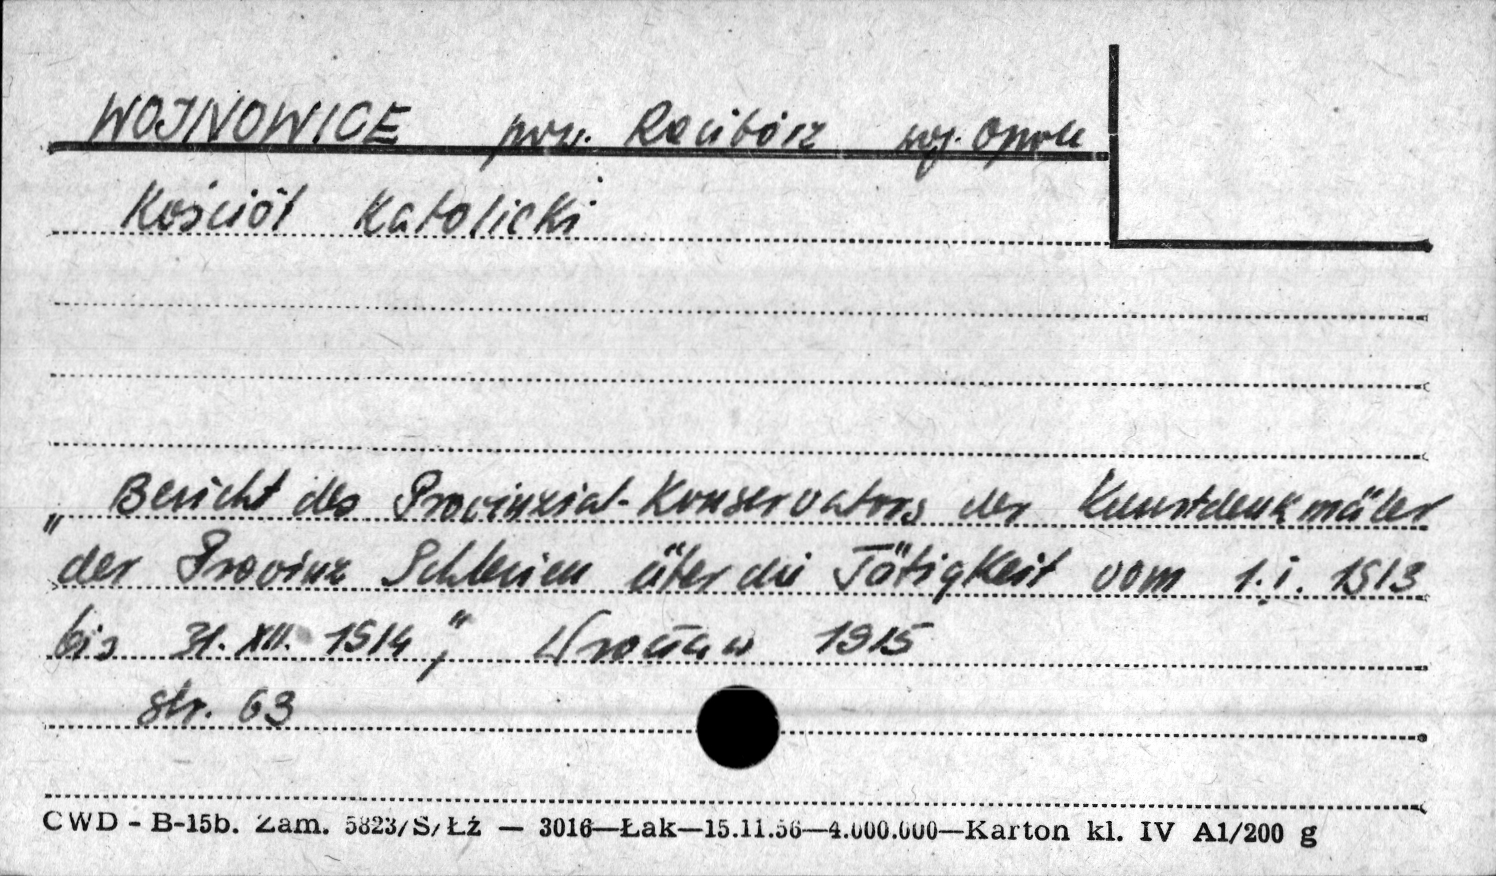 WOJNOWICE pow. Racibórz woj. Opole
Kościół Katolicki
„Bericht des Provinzial-Konservators der Kunstdenkmäler
der Provinz Schlesien über die Tätigkeit vom 1.I. 1913
bis 31.XII. 1914," Wrocław 1915
str. 63
CWD - B-15b. Zam. 5823/S/Łż — 3016—Łak—15.11.56—4.000.000—Karton kl. IV A1/200 g